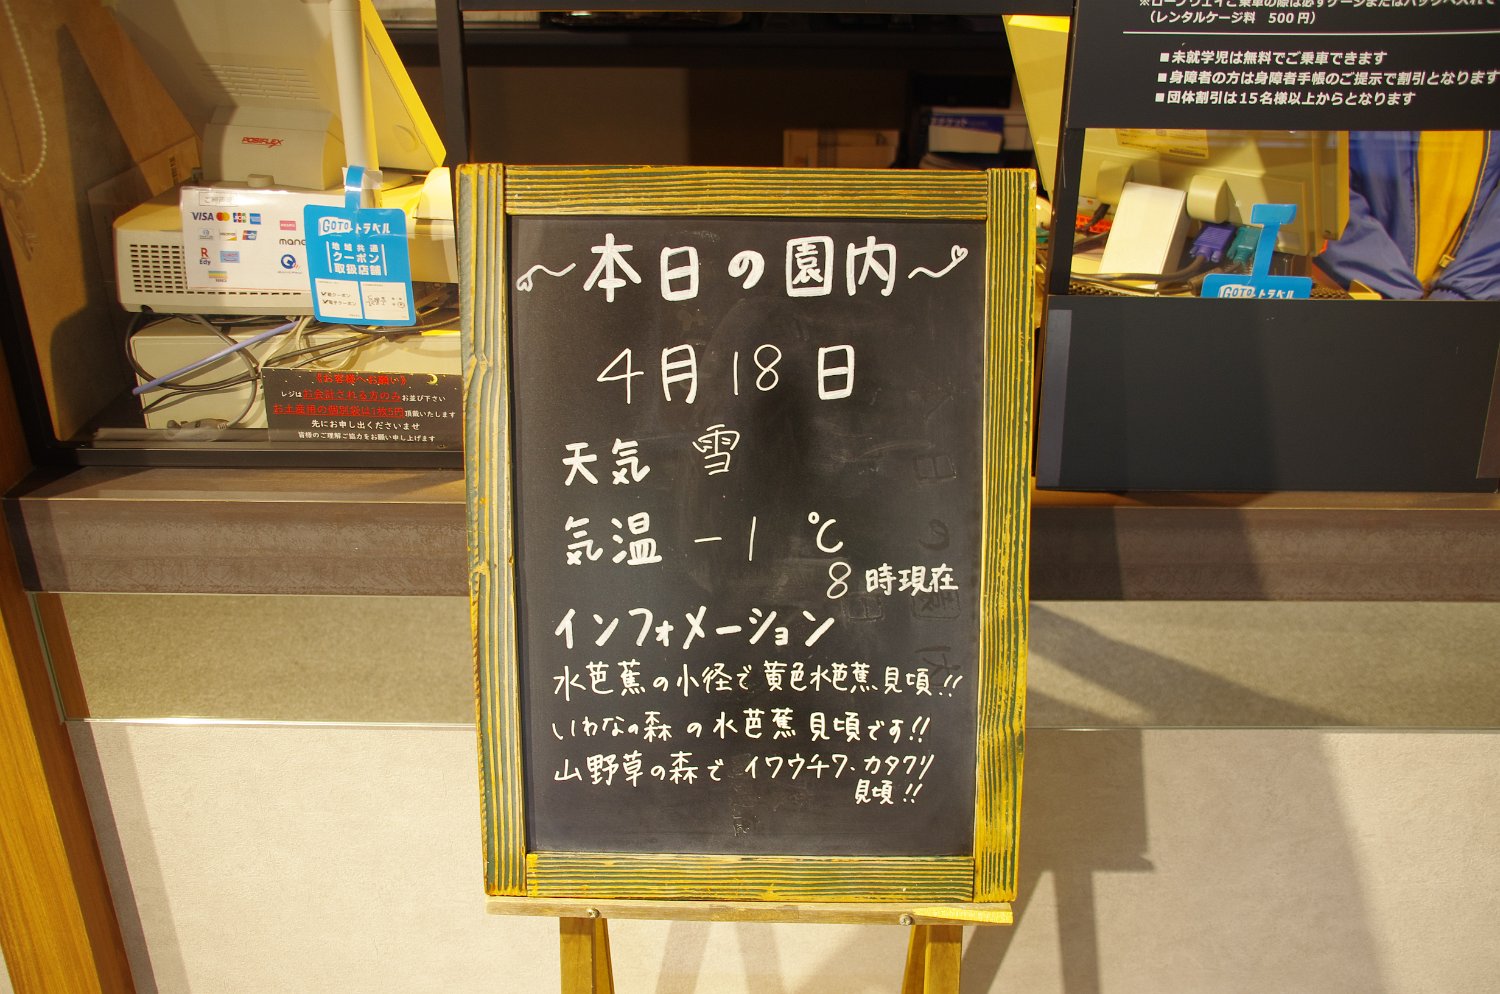 （レンタルケージ料　500円）
■未就学児は無料でご乗車できます
■身障者の方は身障者手帳のご提示で割引となります
■団体割引は15名様以上からとなります
POSIFLEX
VISA
JCB
R
Edy
GOTOトラベル
地域共通
クーポン
取扱店舗
紙クーポン
電子クーポン
GOTOトラベル
《お客様へお願い》
レジはお会計される方のみお並び下さい
お土産用の個別袋は1枚5円頂戴いたします
先にお申し出くださいませ
皆様のご理解ご協力をお願い申し上げます
本日の園内
4月18日
天気 雪
気温 -1 ℃
8時現在
インフォメーション
水芭蕉の小径で黄色水芭蕉見頃!!
いわなの森の水芭蕉見頃です!!
山野草の森でイワウチワ・カタクリ
見頃!!